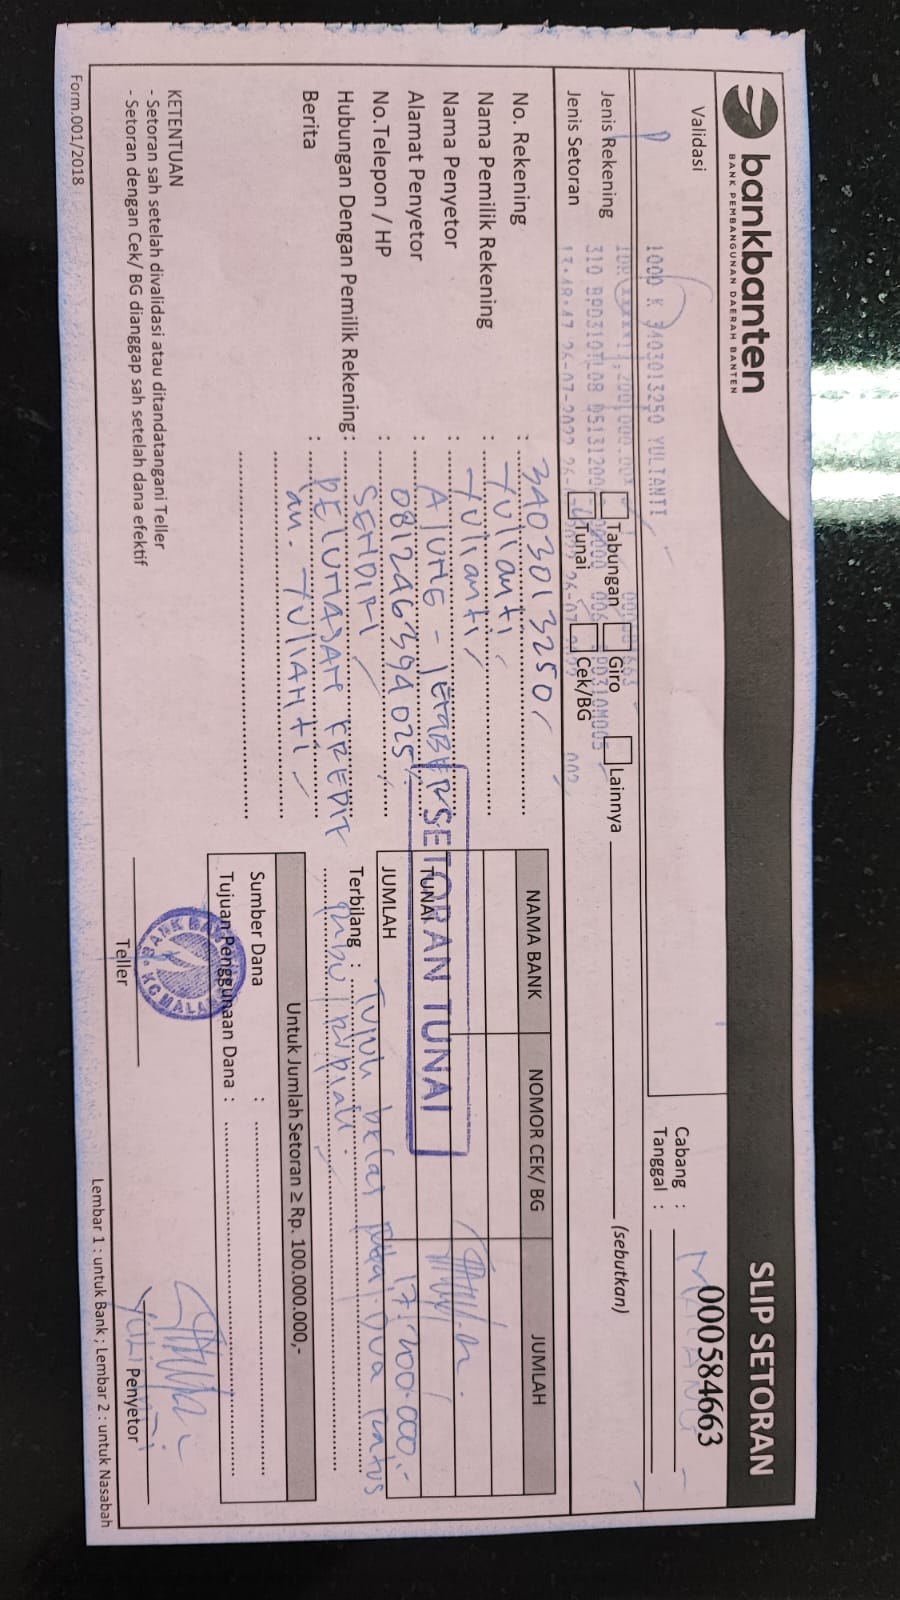 bankbanten
BANK PEMBANGUNAN DAERAH BANTEN
SLIP SETORAN
000584663
Validasi
1000 K 3403013250 YULIANTI
Cabang :
Tanggal :
Jenis Rekening Tabungan Giro Lainnya (sebutkan)
Jenis Setoran Tunai Cek/BG
No. Rekening : 3403013250
Nama Pemilik Rekening : Yulianti
Nama Penyetor : Yulianti
Alamat Penyetor :
No.Telepon / HP : 081246394025
Hubungan Dengan Pemilik Rekening : SENDIRI
Berita : PELUNASAN KREDIT
an. YULIANTI
NAMA BANK NOMOR CEK/ BG JUMLAH
SETORAN TUNAI
TUNAI
JUMLAH 17.200.000,-
Terbilang : Tujuh belas juta dua ratus
ribu rupiah.
Untuk Jumlah Setoran ≥ Rp. 100.000.000,-
Sumber Dana :
Tujuan Penggunaan Dana :
KETENTUAN
- Setoran sah setelah divalidasi atau ditandatangani Teller
- Setoran dengan Cek/ BG dianggap sah setelah dana efektif
Teller
Penyetor
Form.001/2018
Lembar 1 : untuk Bank ; Lembar 2 : untuk Nasabah